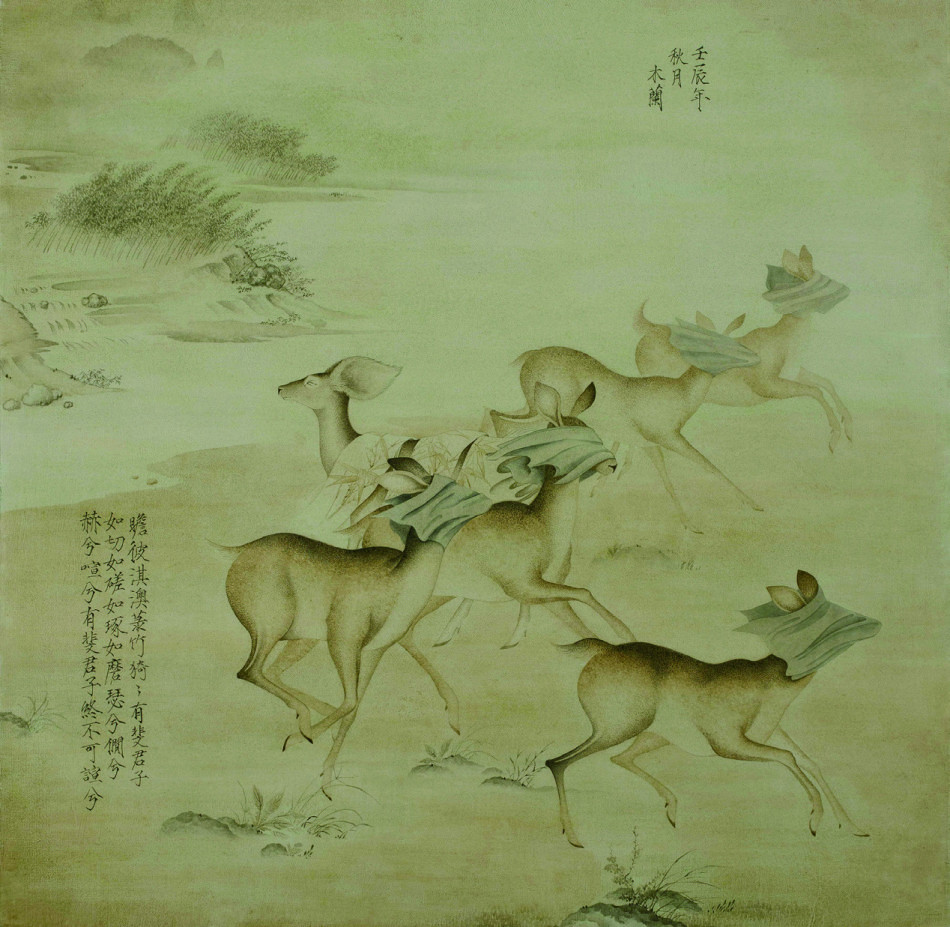 壬辰年
秋月
木蘭
瞻彼淇澳菉竹猗〻有斐君子
如切如磋如琢如磨瑟兮僩兮
赫兮喧兮有斐君子終不可諠兮